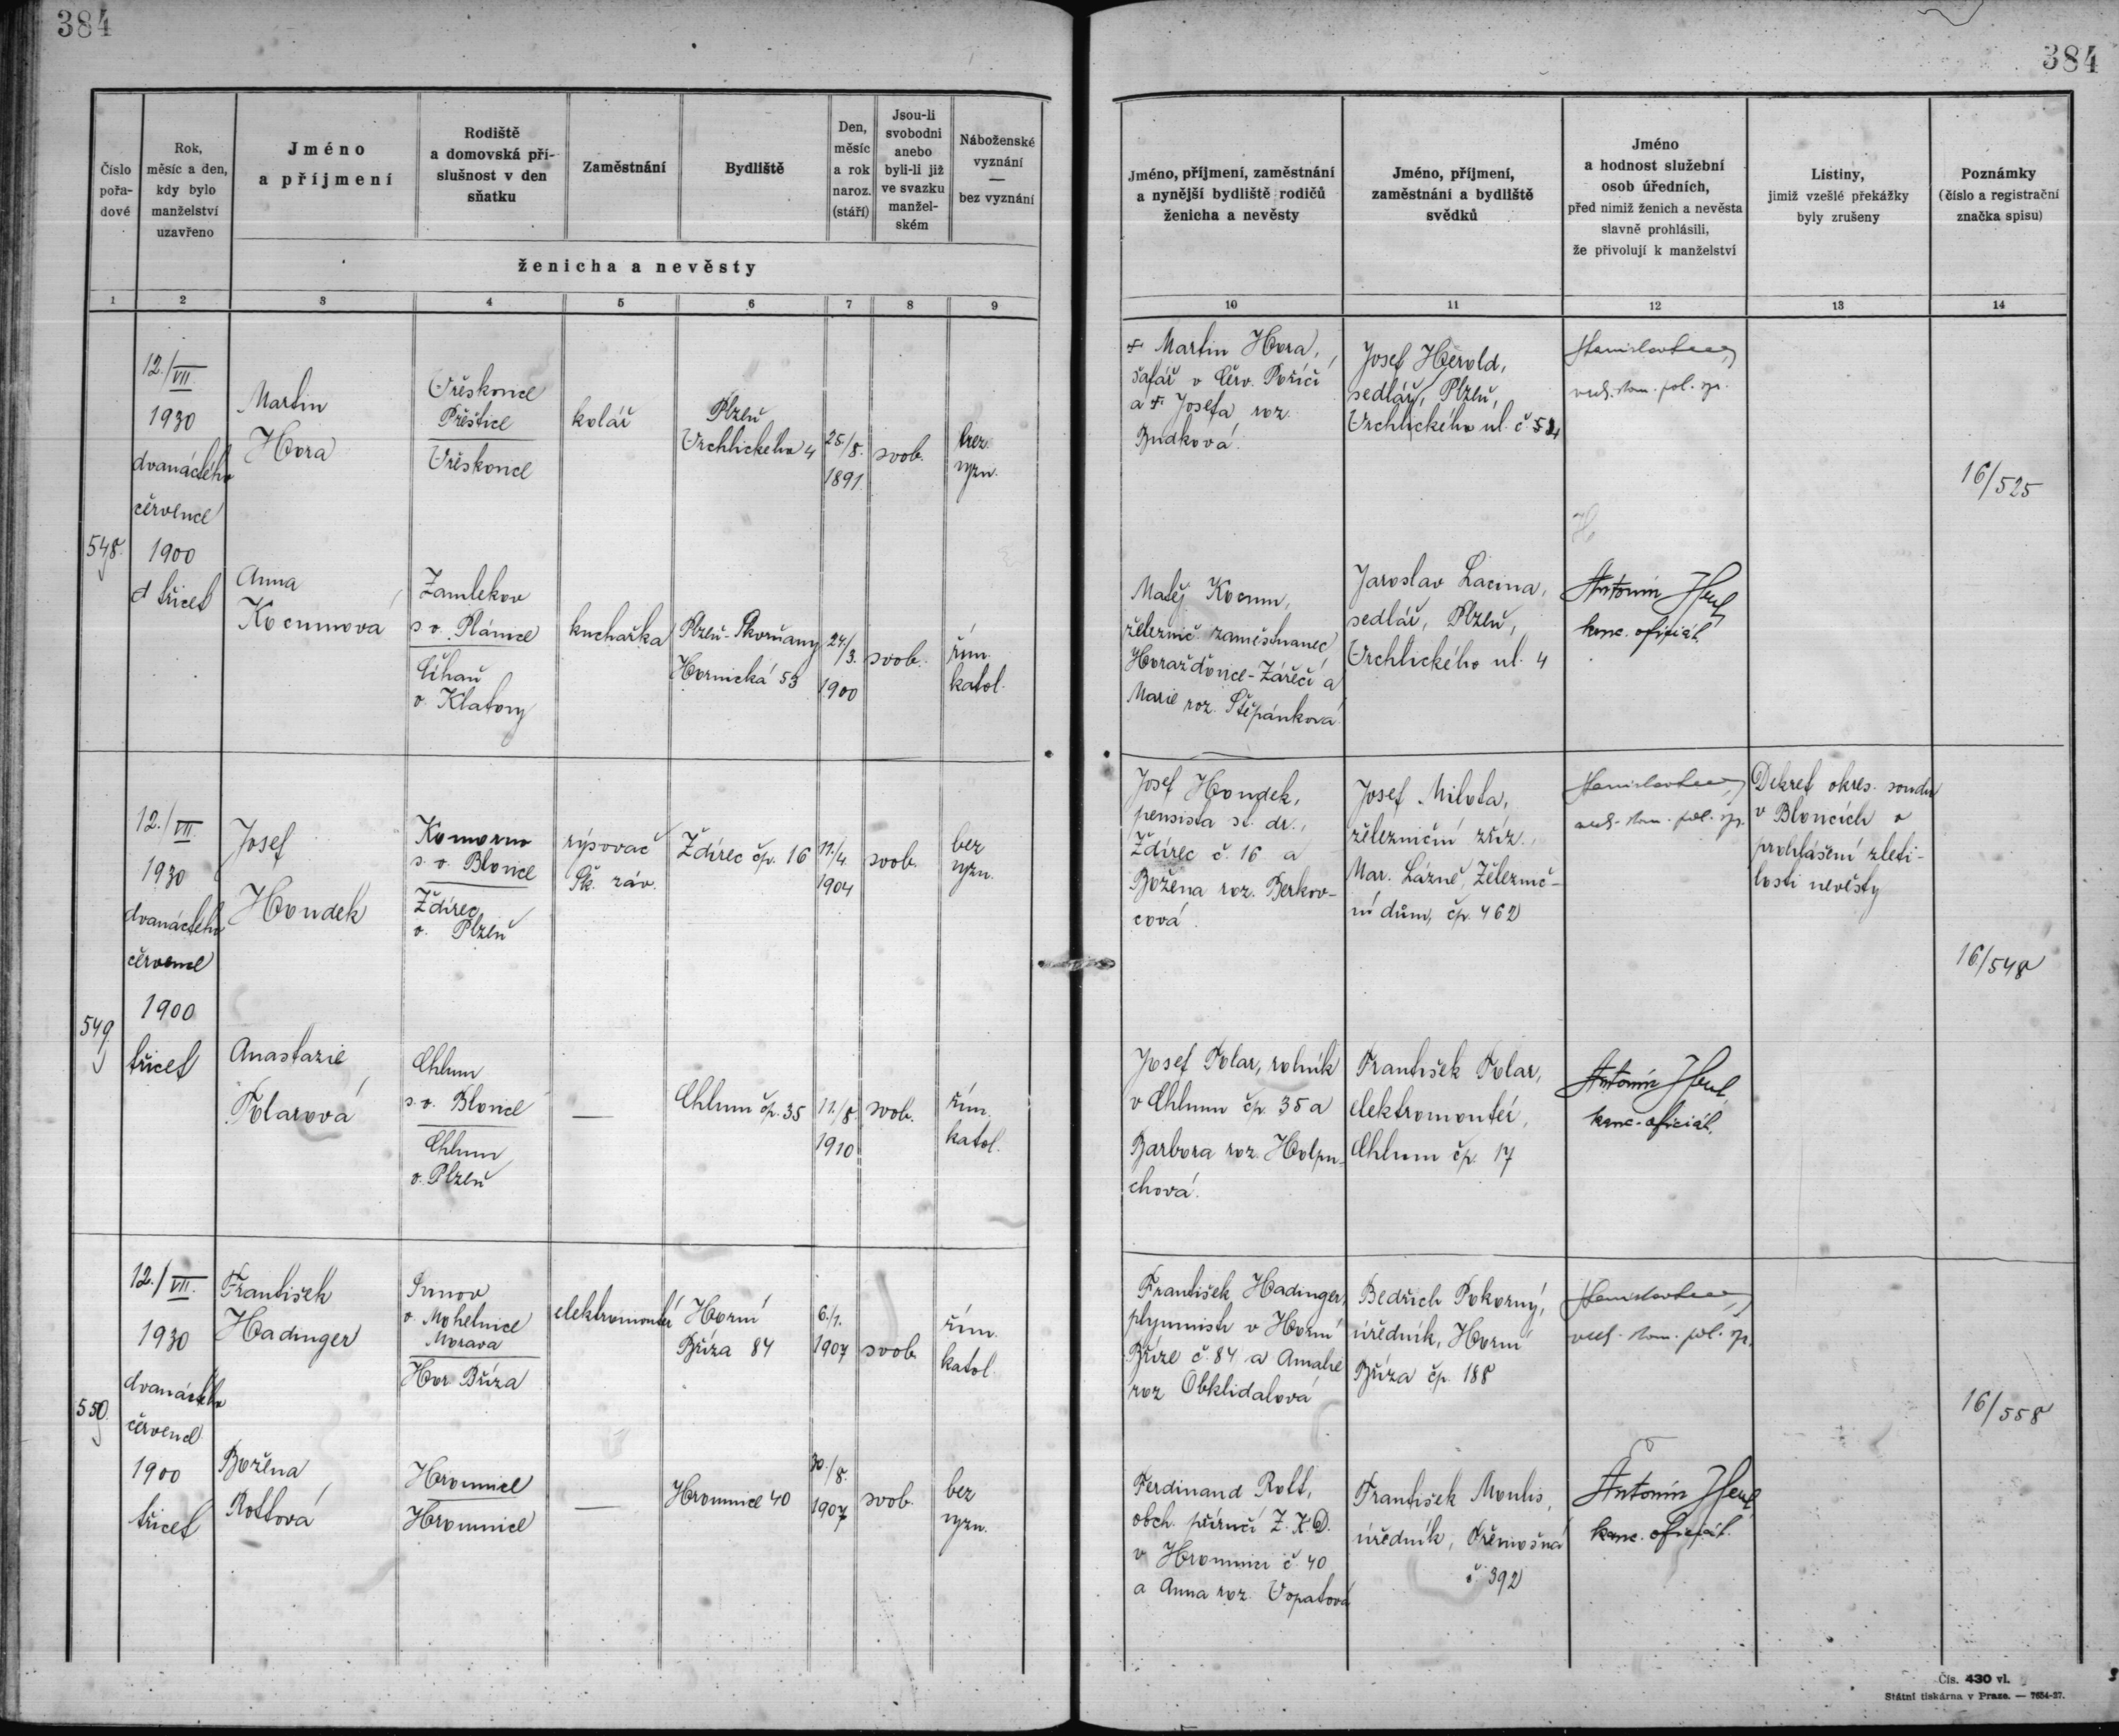 384
384
Číslo pořa-dové
Rok, měsíc a den, kdy bylo manželství uzavřeno
Jméno a příjmení
Rodiště a domovská pří-slušnost v den sňatku
Zaměstnání
Bydliště
Den, měsíc a rok naroz. (stáří)
Jsou-li svobodni anebo byli-li již ve svazku manžel-ském
Náboženské vyznání — bez vyznání
ženicha a nevěsty
Jméno, příjmení, zaměstnání a nynější bydliště rodičů ženicha a nevěsty
Jméno, příjmení, zaměstnání a bydliště svědků
Jméno a hodnost služební osob úředních, před nimiž ženich a nevěsta slavně prohlásili, že přivolují k manželství
Listiny, jimiž vzešlé překážky byly zrušeny
Poznámky (číslo a registrační značka spisu)
1 2 3 4 5 6 7 8 9 10 11 12 13 14
548.
12./VII.
1930
dvanáctého
července
1900
třicet
Martin
Hora
Vřeskovice
Přeštice
Vřeskovice
kolář
Plzeň
Vrchlického 4
25./8.
1891.
svob.
bez
vyzn.
+ Martin Hora,
šafář v Červ. Poříčí
a + Josefa roz.
Budková.
Josef Herold,
sedlář, Plzeň,
Vrchlického ul. č
16/525
Anna
Kocumová
Zamlekov
s. o. Plánice
Číhaň
o. Klatovy
kuchařka
Plzeň-Skvrňany
Hornická 53
24/3.
1900
svob.
řím.
katol.
Matěj Kocum,
železnič. zaměstnanec
Horažďovice-Zářečí a
Marie roz. Štěpánková
Jaroslav Lacina,
sedlář, Plzeň,
Vrchlického ul. 4
Antonín
kanc. oficiál.
549.
12./VII.
1930
dvanáctého
července
1900
třicet
Josef
Houdek
Komorno
s. o. Blovice
Ždírec
o. Plzeň
rýsovač
Šk. záv.
Ždírec čp. 16
11./4
1904
svob.
bez
vyzn.
Josef Houdek,
pensista st. dr.,
Ždírec č. 16 a
Božena roz. Berkov-
cová.
Josef Milota,
železniční zříz.,
Mar. Lázně, Železnič-
ní dům, čp. 462
Dekret okres. soudu
v Blovicích o
prohlášení zleti-
losti nevěsty
16/548
Anastazie
Tolarová
Chlum
s. o. Blovice
Chlum
o. Plzeň
—
Chlum čp. 35
11./8
1910
svob.
řím.
katol.
Josef Tolar, rolník
v Chlumu čp. 35 a
Barbora roz. Holpu-
chová.
František Tolar,
elektromontér,
Chlum čp. 17
Antonín
kanc. oficiál.
550.
12./VII.
1930
dvanáctého
července
1900
třicet
František
Hadinger
o. Mohelnice
Morava
Hor. Bříza
elektromontér
Horní
Bříza 84
6./1.
1907
svob.
řím.
katol.
František Hadinger,
plynmistr v Horní
Bříze č. 84 a Amalie
roz. Obklidalová
Bedřich Pokorný,
úředník, Horní
Bříza čp. 188
16/558
Božena
Rottová
Hromnice
Hromnice
—
Hromnice 40
30./8.
1907
svob.
bez
vyzn.
Ferdinand Rott,
obch. příručí Z. K. D.
v Hromnici č. 40
a Anna roz. Vopatová
František Moulis,
úředník, Třemošná
č. 392
Antonín
kanc. oficiál.
Čís. 430 vl.
Státní tiskárna v Praze. — 7654-27.